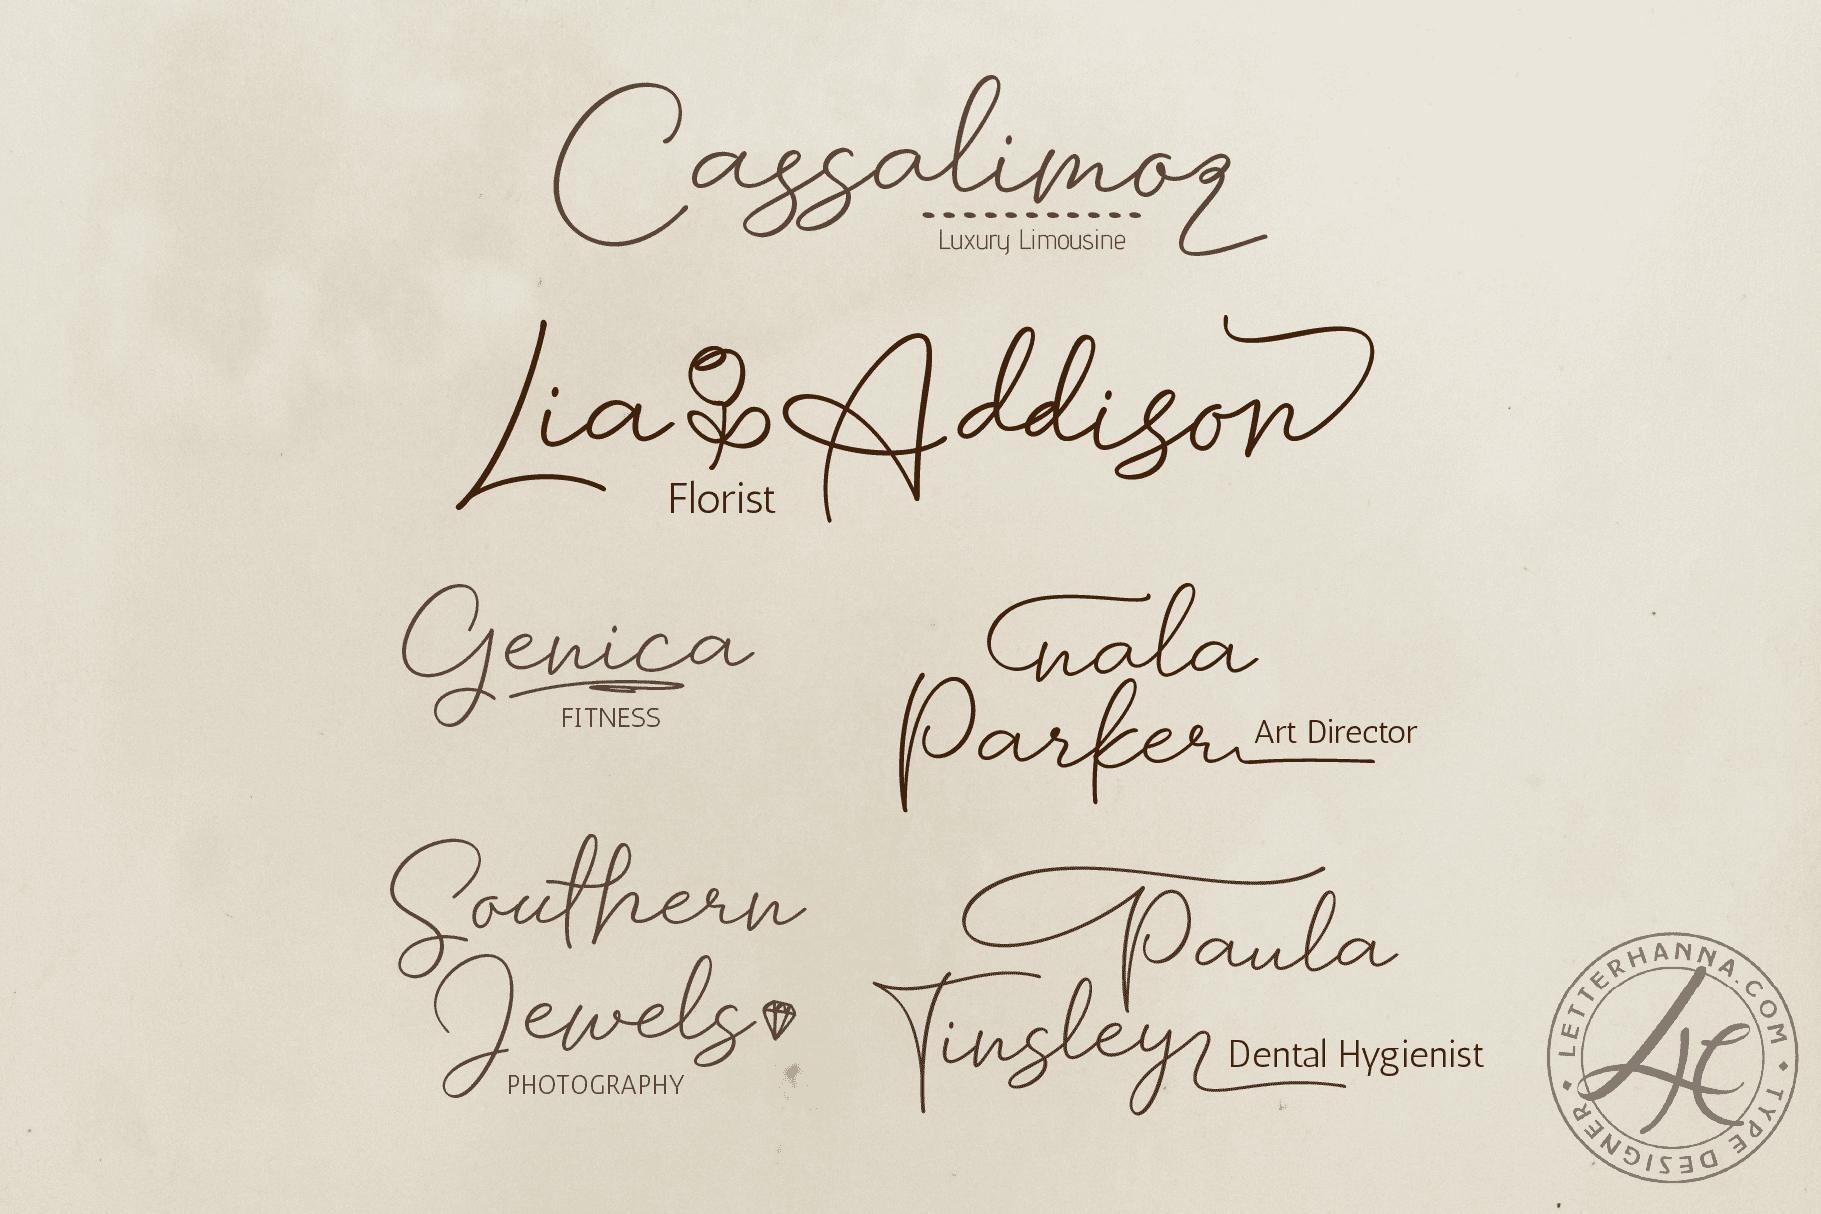 Cassalimoz
Luxury Limousine
Lia Addison
Florist
Genica
FITNESS
nala
Parker Art Director
Southern
Jewels
PHOTOGRAPHY
Paula
Tinsley Dental Hygienist
LETTERHANNA.COM • TYPE DESIGNER •
LH